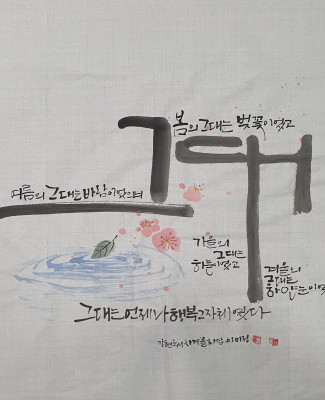 그대
봄의 그대는 벚꽃이었고
여름의 그대는 바람이었으며
가을의
그대는
하늘이었고
겨울의
그대는
하얀눈이었
그대는 언제나 행복 그 자체였다